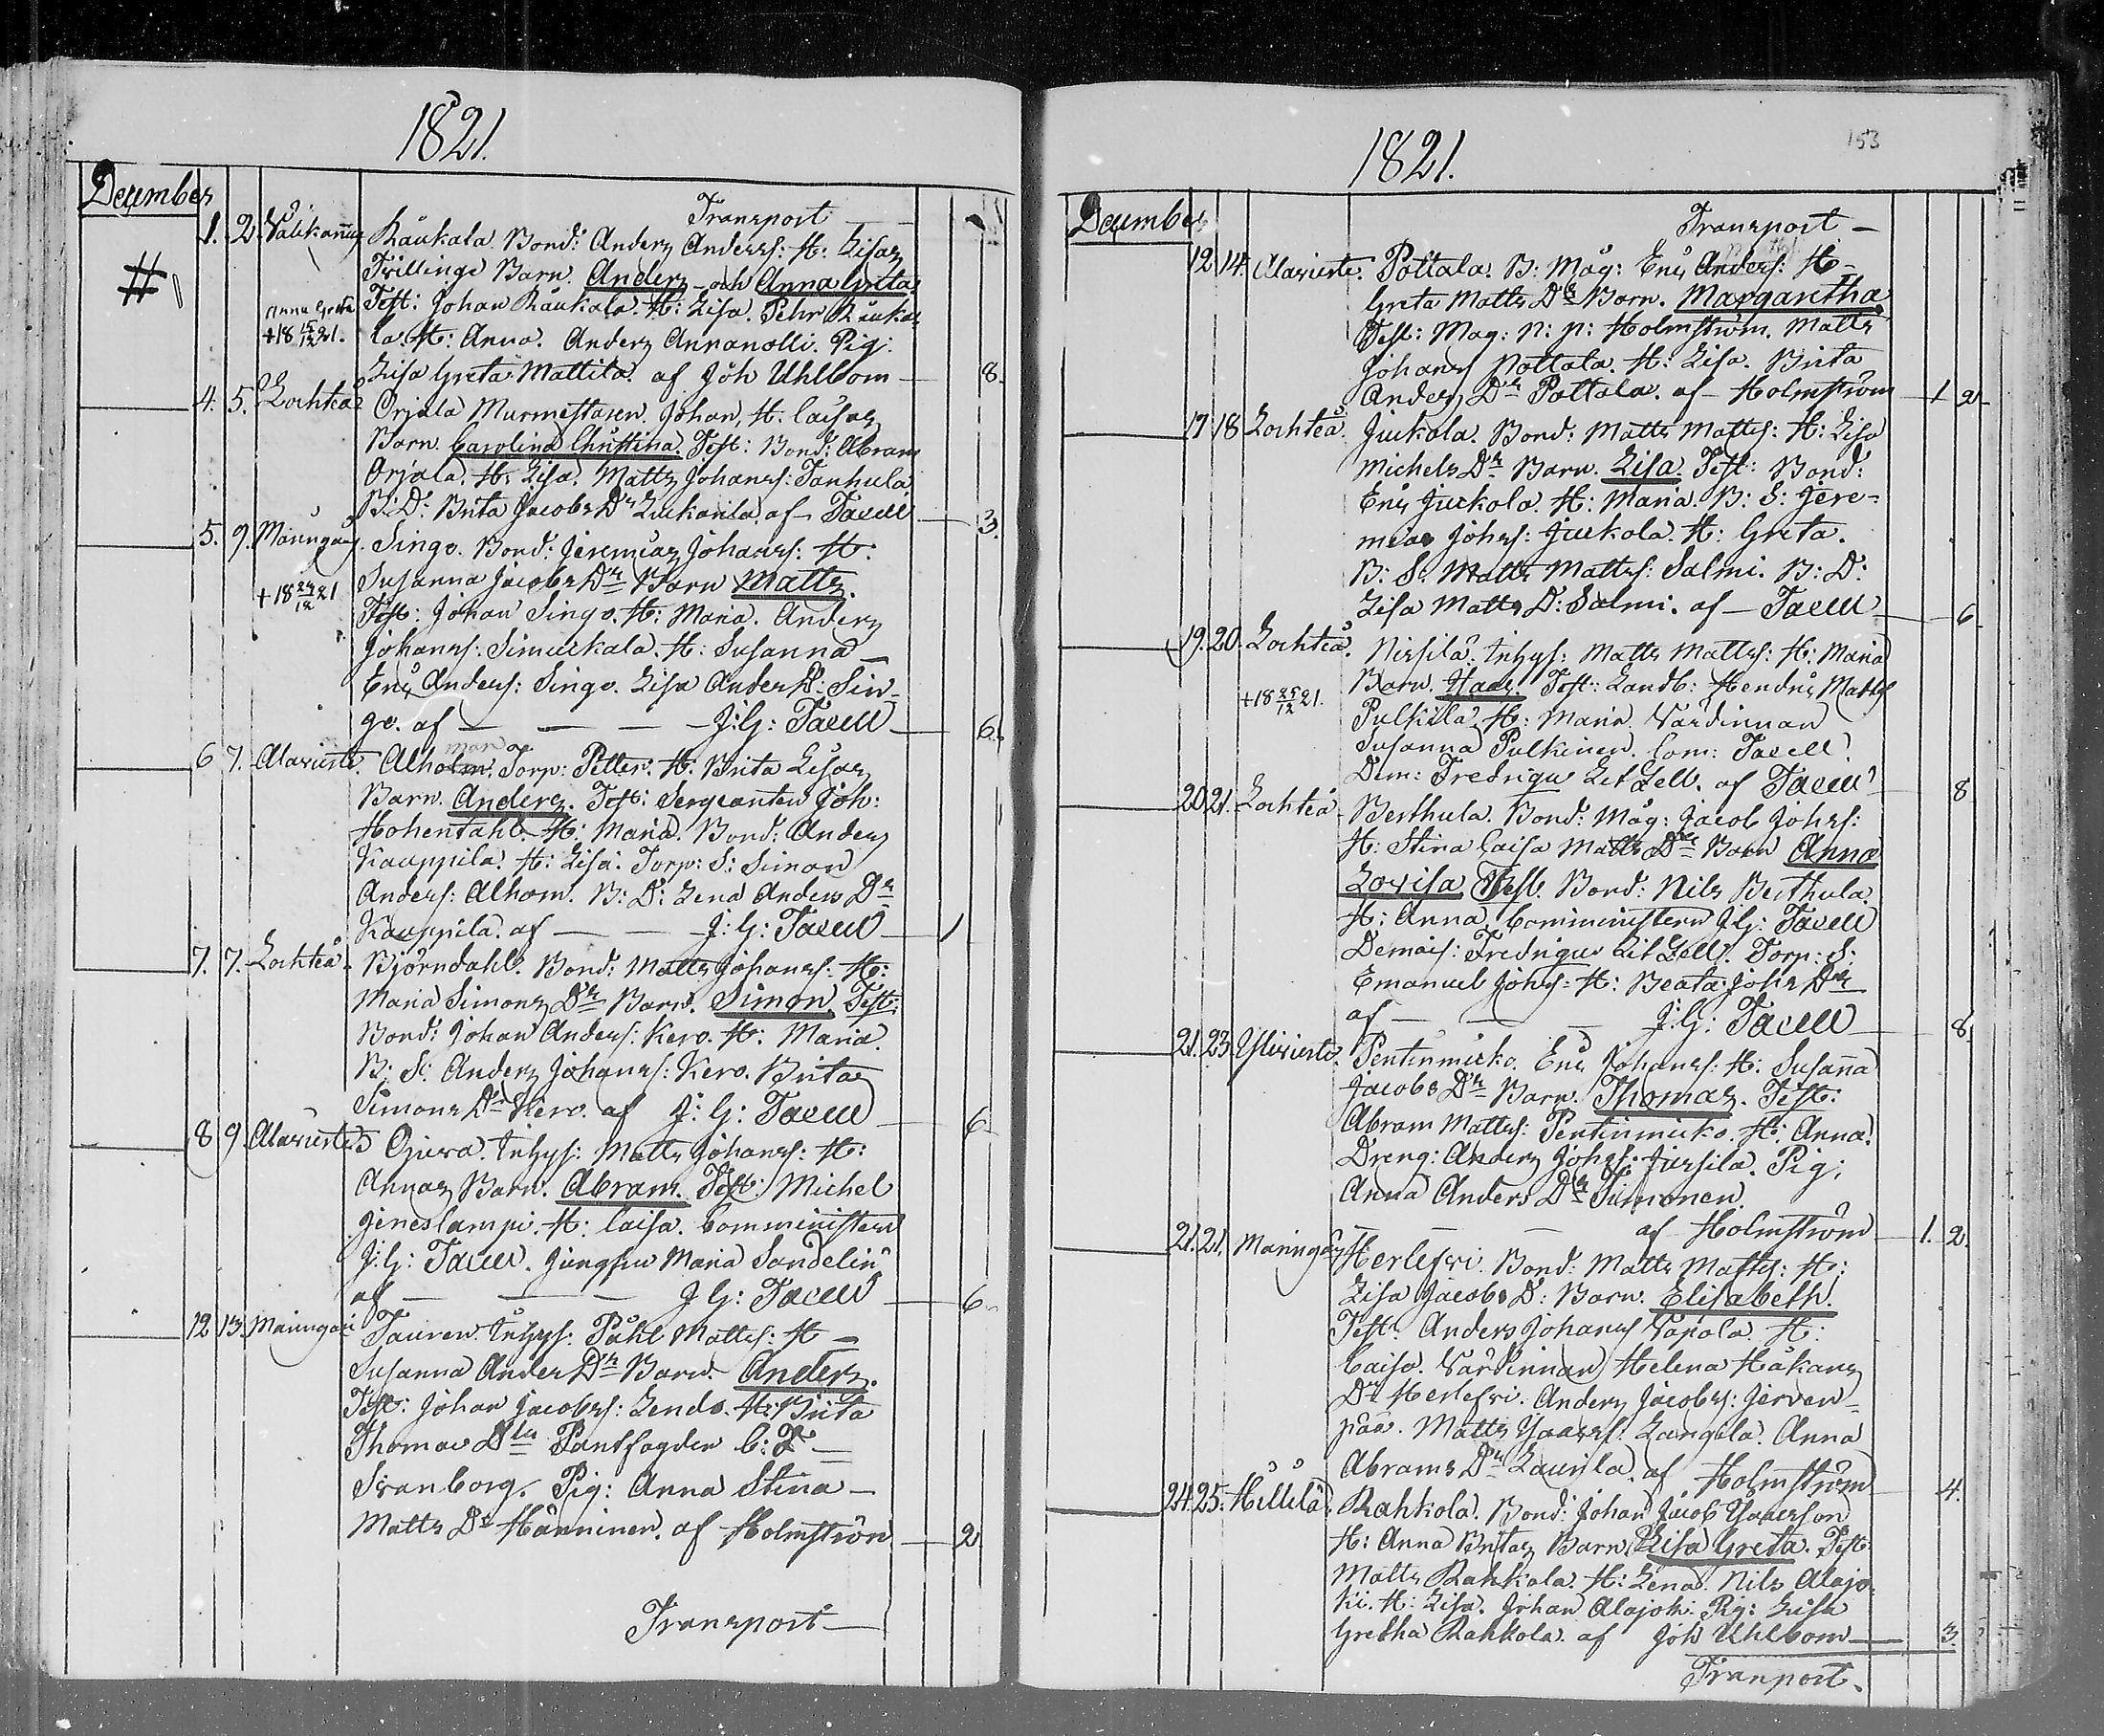 1821.
December
Transport
1. 2. Välikannus Raukala Bond: Anders Anderss: H: Lisas
Tvillinge Barn. Anders och Anna Greta
Anna Greta Test: Johan Raukala. H: Lisa. Pehr Rauka
+18 15/12 21. la. H: Anna. Anders Annanolli. Pig:
Lisa Greta Mattila. af Joh Uhlbom 8.
4. 5. Lochteå Orjala Murmestaren Johan, H: Caisas
Barn. Carolina Christina. Test: Bond: Abram
Orjala. H: Lisa. Matts Johanss: Tanhula
B: D: Brita Jacobs Dr Luckarila af Tacell 3.
5. 9. Maringais. Singo. Bond: Jeremias Johanss: H:
Susanna Jacobs Dr Barn Matts.
+18 24/12 21 Test: Johan Singo. H: Maria. Anders
Johanss: Simuckala. H: Susanna
Eric Anderss: Singo. Lisa Anders D: Sin-
go. af J: G: Tacell 6.
6 7. Alavieste. Alholm man Torp: Petter. H: Brita Lisas
Barn. Anders. Test: Sergeanten Joh:
Hohentahl H: Maria. Bond: Anders
Kauppila. H: Lisa. Torp: S: Simon
Anderss: Alhom. B: D: Lena Anders Dr
Kauppila. af J: G: Tacell 1
7. 7. Lochteå. Björndahl. Bond: Matts Johanss: H:
Maria Simons Dr Barn. Simon. Test:
Bond: Johan Anderss: Kero. H: Maria.
B: S: Anders Johanss: Kero. Brita
Simons Dr Kero. af J: G: Tacell 6
8 9. Alavieste Ojura. Inhys: Matts Johanss: H:
Annas Barn. Abram. Test: Michel
Jeneslampi. H: Caisa. Comministern
J: G: Tacell. Jungfru Maria Sandelin
af J G: Tacell 6.
12 13. Maringais Tauren. Inhys: Påhl Mattss: H
Susanna Anders Dr Barn. Anders.
Test: Johan Jacobss: Lendo. H: Brita
Thomas Dtr Pantfogden C: F
Svanborg. Pig: Anna Stina
Matts Dr Hänninen. af Holmström 2
Transport
1821.
153
December
Transport
12 14. Alavieste. Pottala. B: Måg: Eric Anderss: H
Greta Matts Dr Barn. Margaretha
Test: Mag: N: N: Holmström. Matts
Johanss Pottala. H: Lisa. Brita
Anders Dr Pottala. af Holmström 1 2
17 18 Lochteå. Juckola. Bond: Matts Mattss: H: Lisa
Michels Dr Barn. Lisa. Test: Bond:
Eric Juckola. H: Maria. B: S: Jere-
mias Johss: Juckola. H: Greta.
B: S: Matts Mattss: Salmi. B: D:
Lisa Matts D: Salmi. af Tacell 6
19. 20. Lochteå. Nissilä. Inhys: Matts Mattss: H: Maria
+18 25/12 21. Barn. Isaac. Test: Landb: Hendric Matts
Pulkila. H: Maria. Värdinnan
Susanna Pulkinen. Com: Tacell.
Dem: Fredrique Lit Zell. af Tacell 8
20 21. Lochteå. Berthula. Bond: Måg: Jacob Johss:
H: Stina Caisa Matts Dr Barn Anna
Lovisa Test: Bond: Nils Berthula.
H: Anna. Comministern J G: Tacell
Demois: Fredrique Lit Zell. Torp: S:
Emanuel Johss: H: Beata Johs Dr
af J: G: Tacell 8.
21. 23. Ylivieste. Pentinmicko. Eric Johanss: H: Susanna
Jacobs Dr Barn. Thomas. Test:
Abram Mattss: Pentinmicko. H: Anna.
Dreng: Anders Johss: Jussila. Pig:
Anna Anders Dr Timonen
af Holmström 1. 2.
21. 21. Maringais Herlefvi. Bond: Matts Mattss: H:
Lisa Jacobs D: Barn. Elisabeth.
Test: Anders Johanss Vapola. H:
Caisa. Värdinnan Helena Håkans
Dr Herlefvi. Anders Jacobss: Jerven-
pää. Matts Isaacss: Langila. Anna
Abrams Dr Laurila. af Holmström 4.
24. 25. Hillilä. Rahkola. Bond: Johan Jacob Isaacson
H: Anna Britas Barn Lisa Greta. Test:
Matts Rahkola. H: Lena. Nils Alajo
ki. H: Lisa. Johan Alajoki. Pig: Lisa
Gretha Rahkola. af Joh Uhlbom 3
Tranport.